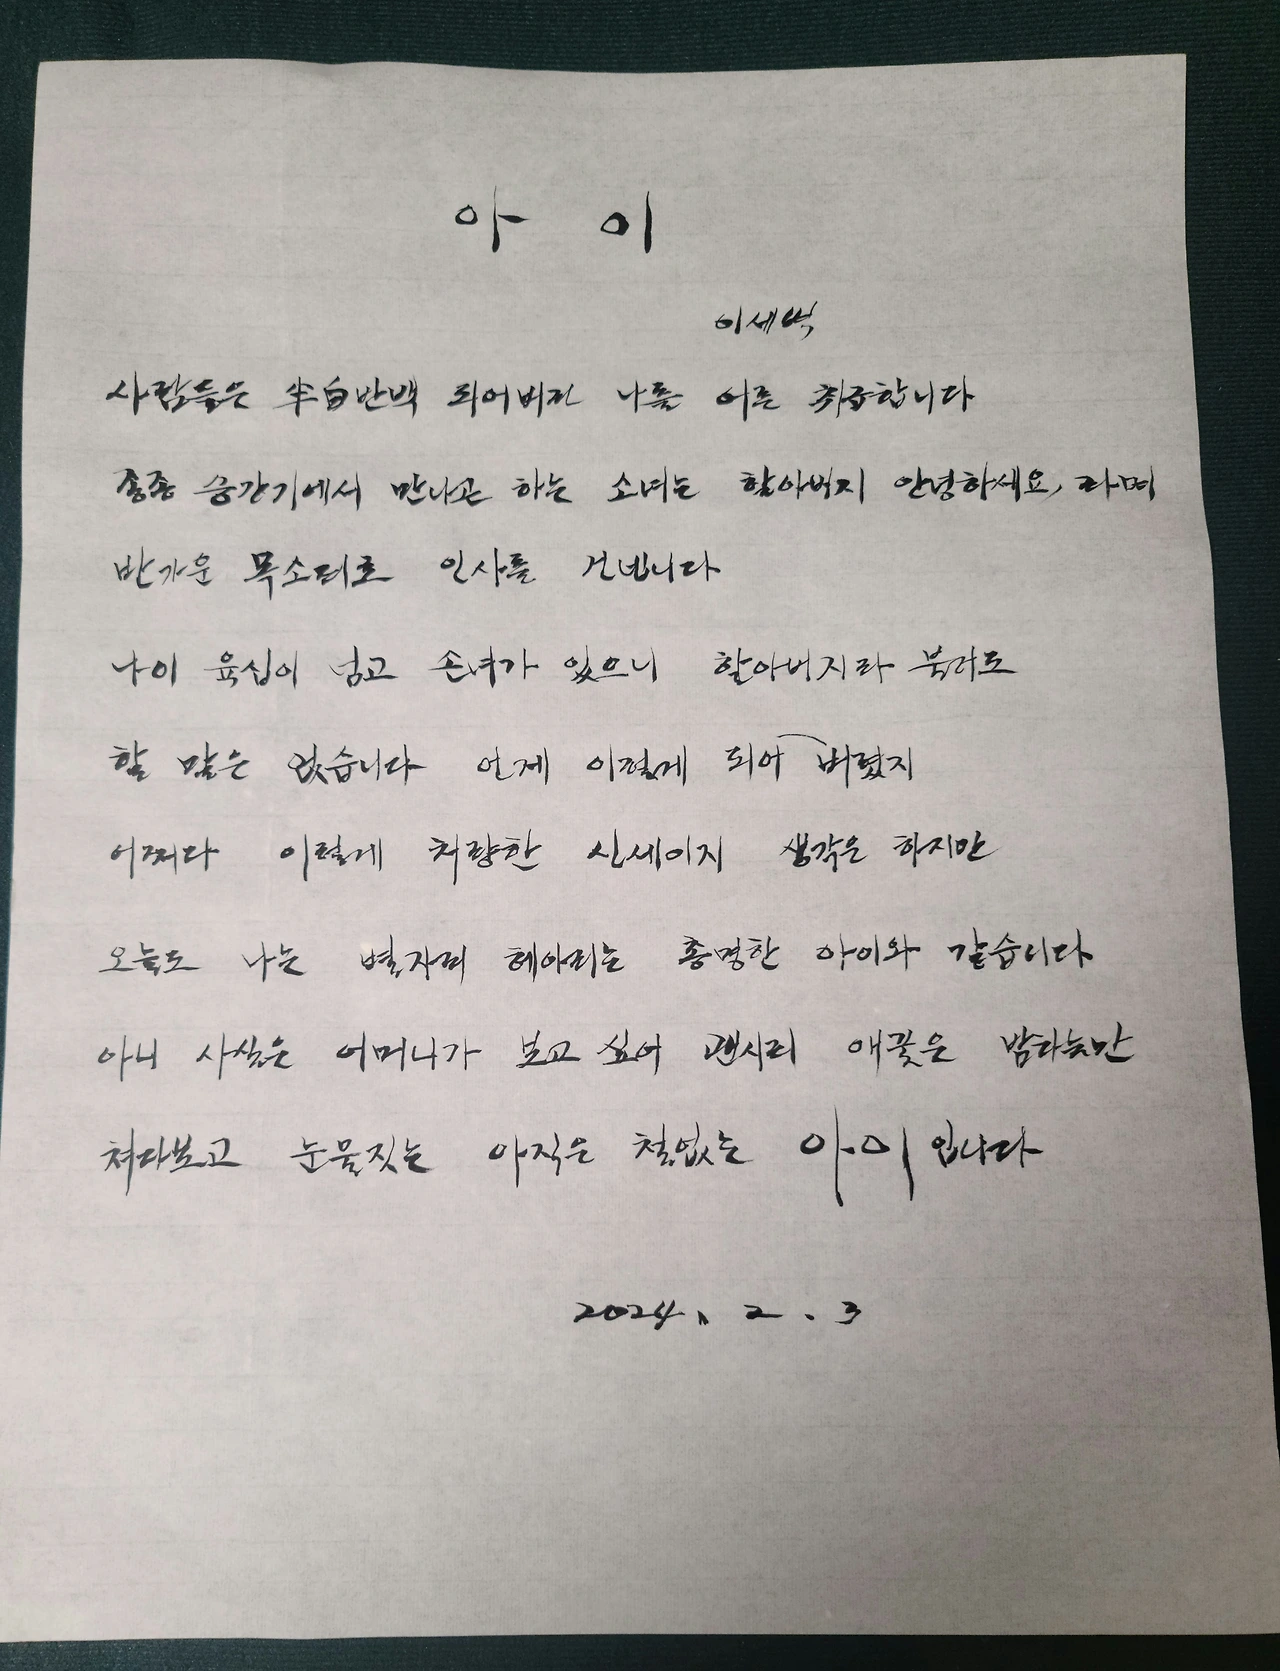 아 이
이세벽
사람들은 半白반백 되어버린 나를 어른 취급합니다
종종 승강기에서 만나곤 하는 소녀는 할아버지 안녕하세요, 라며
반가운 목소리로 인사를 건넵니다
나이 육십이 넘고 손녀가 있으니 할아버지라 불러도
할 말은 없습니다 언제 이렇게 되어 버렸지
어쩌다 이렇게 처량한 신세이지 생각은 하지만
오늘도 나는 별자리 헤아리는 총명한 아이와 같습니다
아니 사실은 어머니가 보고 싶어 괜시리 애꿎은 밤하늘만
쳐다보고 눈물짓는 아직은 철없는 아이입니다
2024. 2. 3